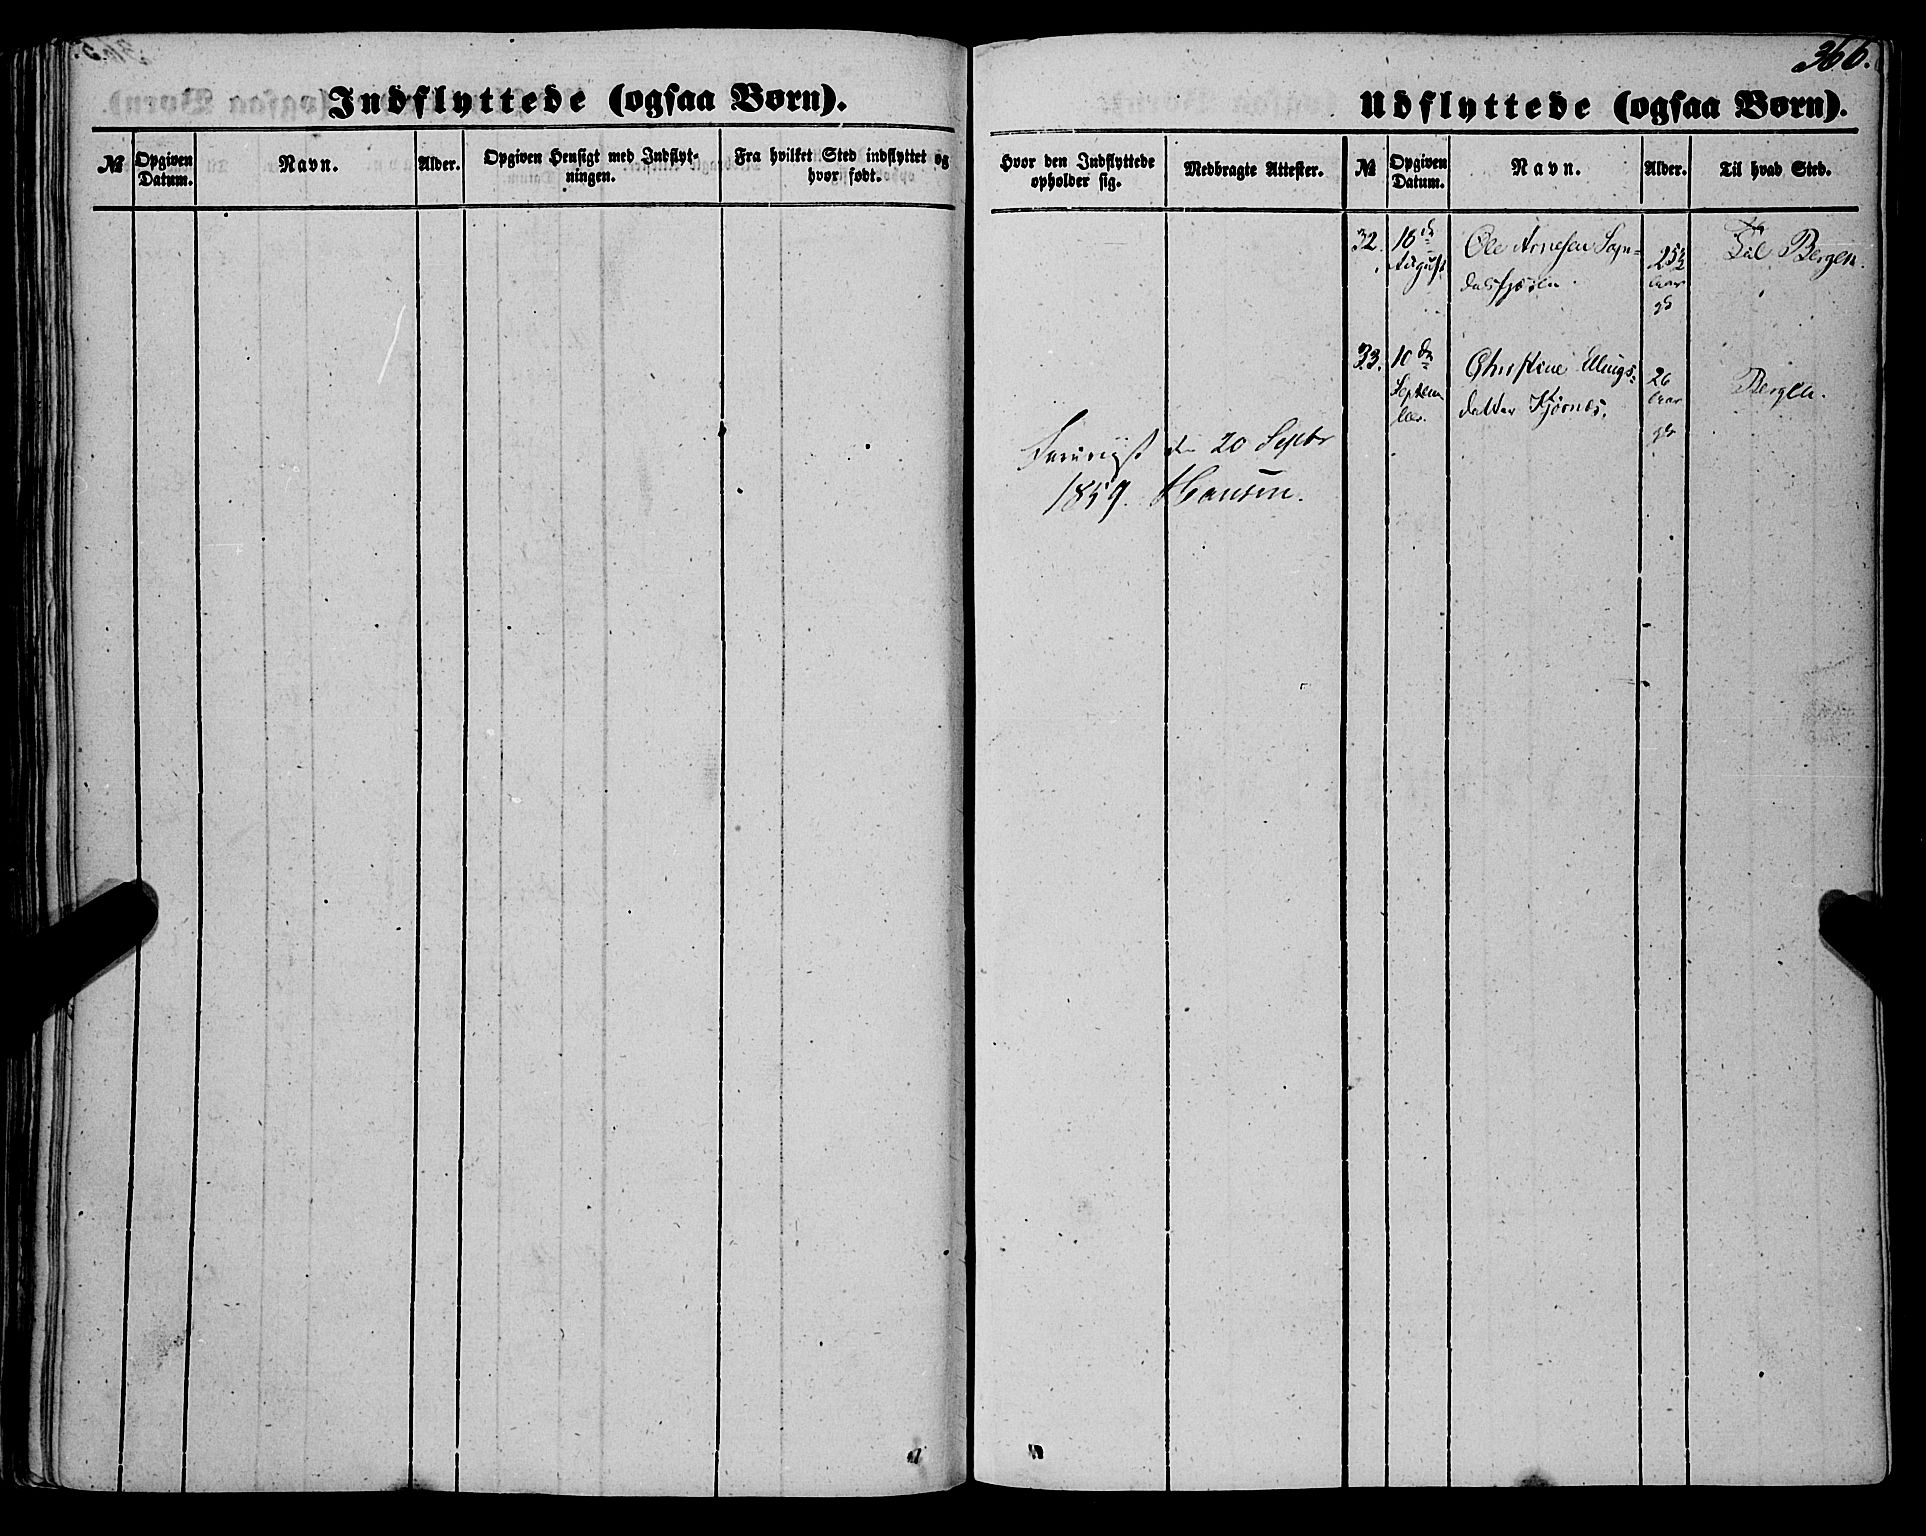 366.
Indflyttede (ogsaa Børn).
№
Opgiven Datum.
Navn.
Alder.
Opgiven Hensigt med Indflyt-
ningen.
Fra hvilket Sted indflyttet og
hvor født.
Udflyttede (ogsaa Børn).
Hvor den Indflyttede
opholder sig.
Medbragte Attester.
№
Opgiven Datum.
Navn.
Alder.
Til hvad Sted.
32.
18de
August
Ole Arnesen Sogn-
dalsfjøren.
25½
Aar
gl
Til Bergen.
33.
10de
Septem
ber.
Christine Ellings-
datter Kjørnes.
26
Aar
gl
Bergen.
den 20 Septbr
1859. Hansen.